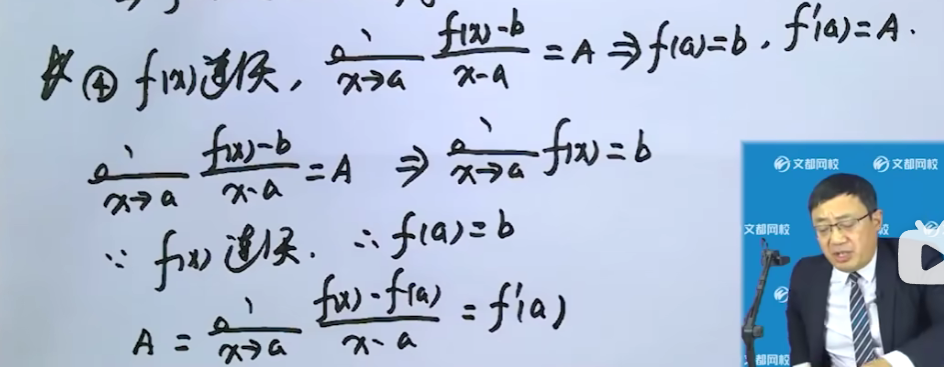 ④ f(x)连续, lim x→a f(x)-b / x-a = A ⇒ f(a)=b, f'(a)=A.
lim x→a f(x)-b / x-a = A ⇒ lim x→a f(x)=b
∵ f(x)连续. ∴ f(a)=b
A = lim x→a f(x)-f(a) / x-a = f'(a)
文都网校 文都网校
文都网校
都网校